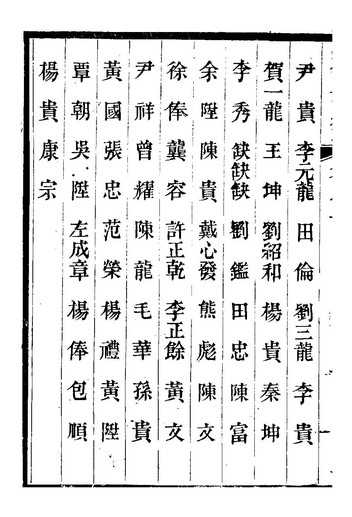 尹貴李元龍田倫劉三龍李貴
賀一龍王坤劉紹和楊貴秦坤
李秀缺缺缺劉鑑田忠陳富
余陞陳貴戴心發熊彪陳文
徐俸龔容許正乾李正餘黃文
尹祥曾耀陳龍毛華孫貴
黃國張忠范榮楊禮黃陞
覃朝吳陞左成章楊俸包順
楊貴康宗